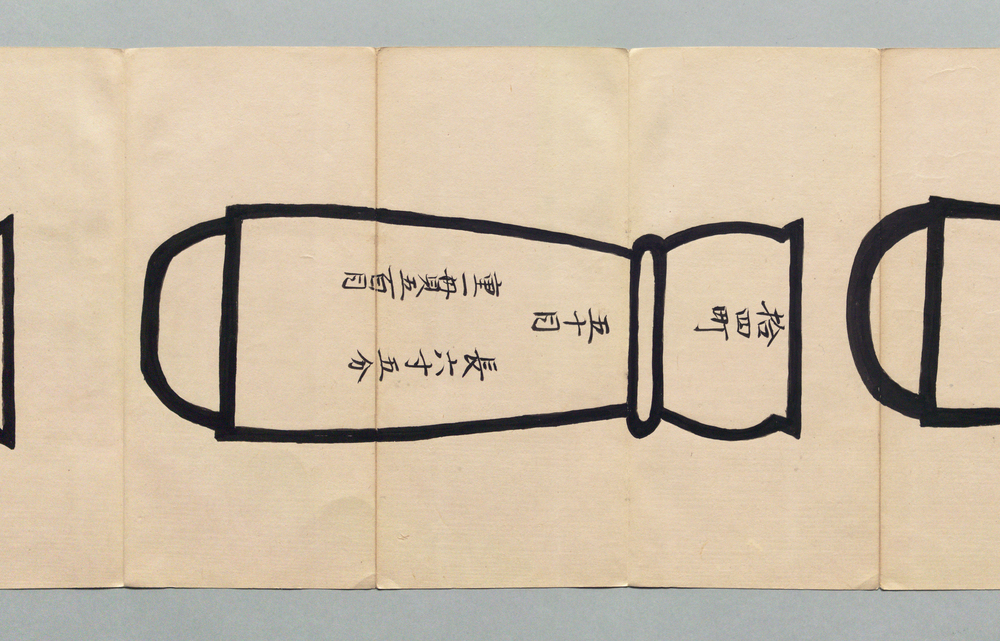 拾四町
五十目
長六寸五分
重一貫五百目